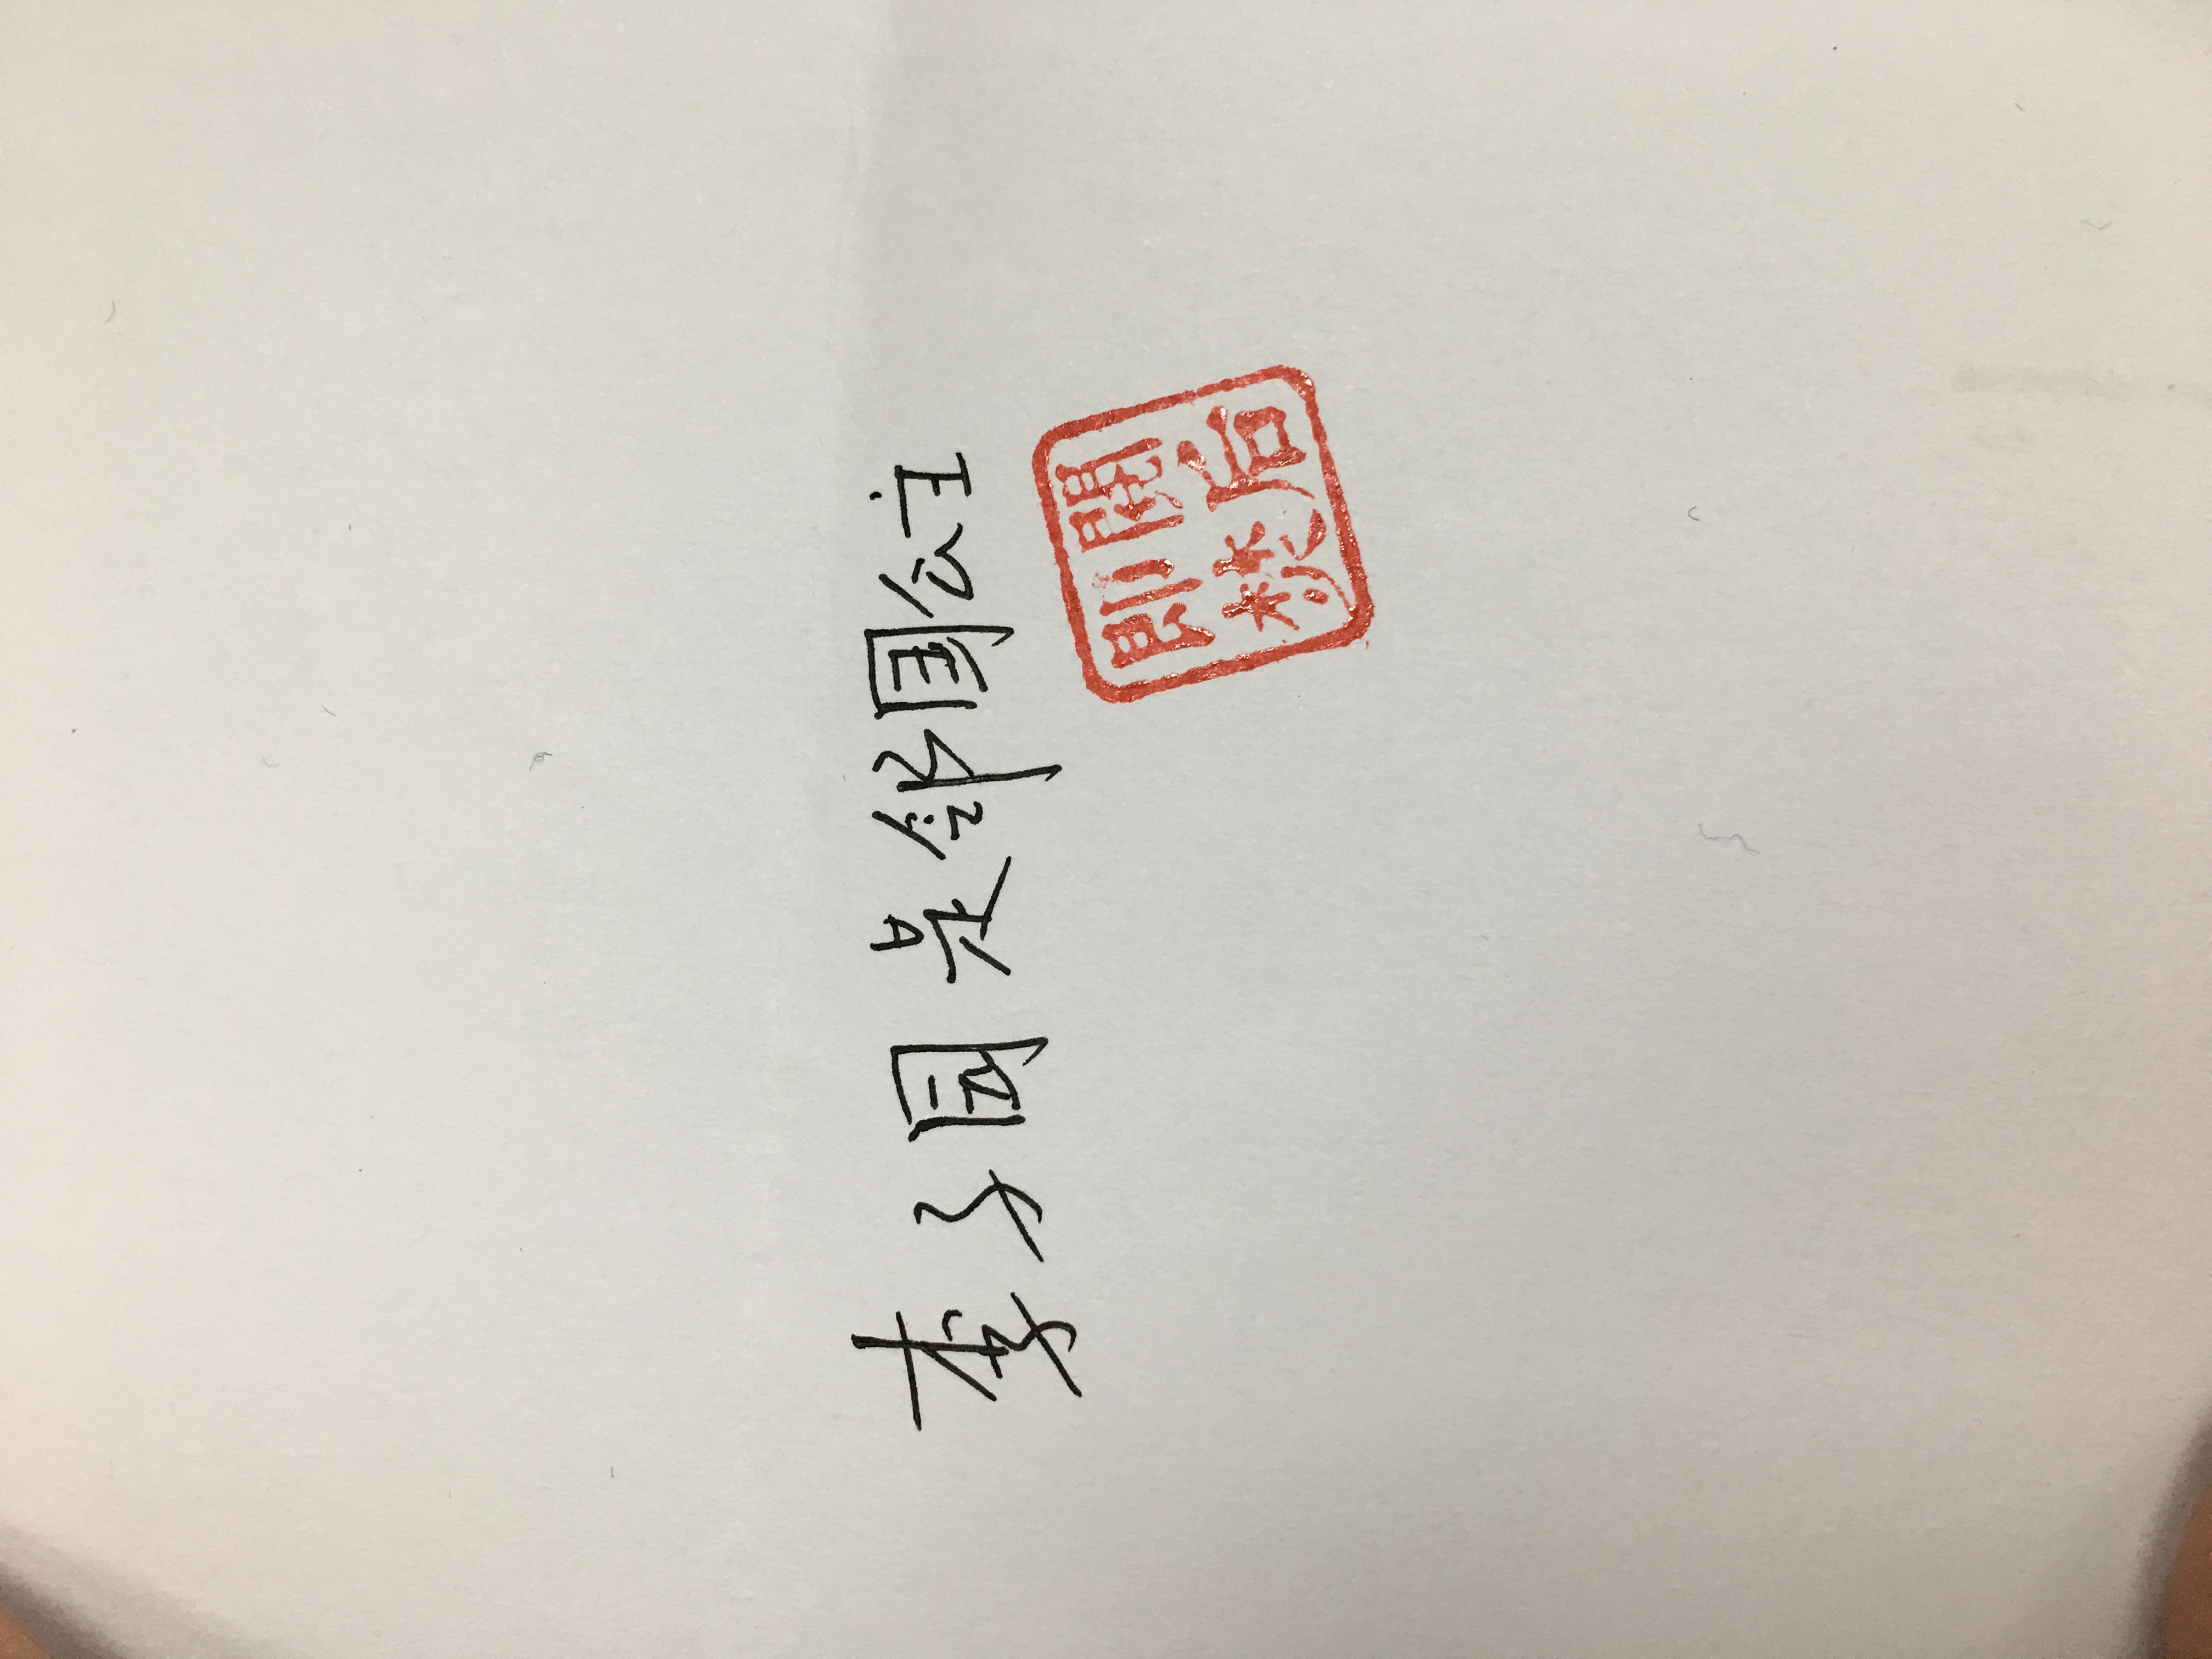 李子园是邻国公主
閱后
即焚